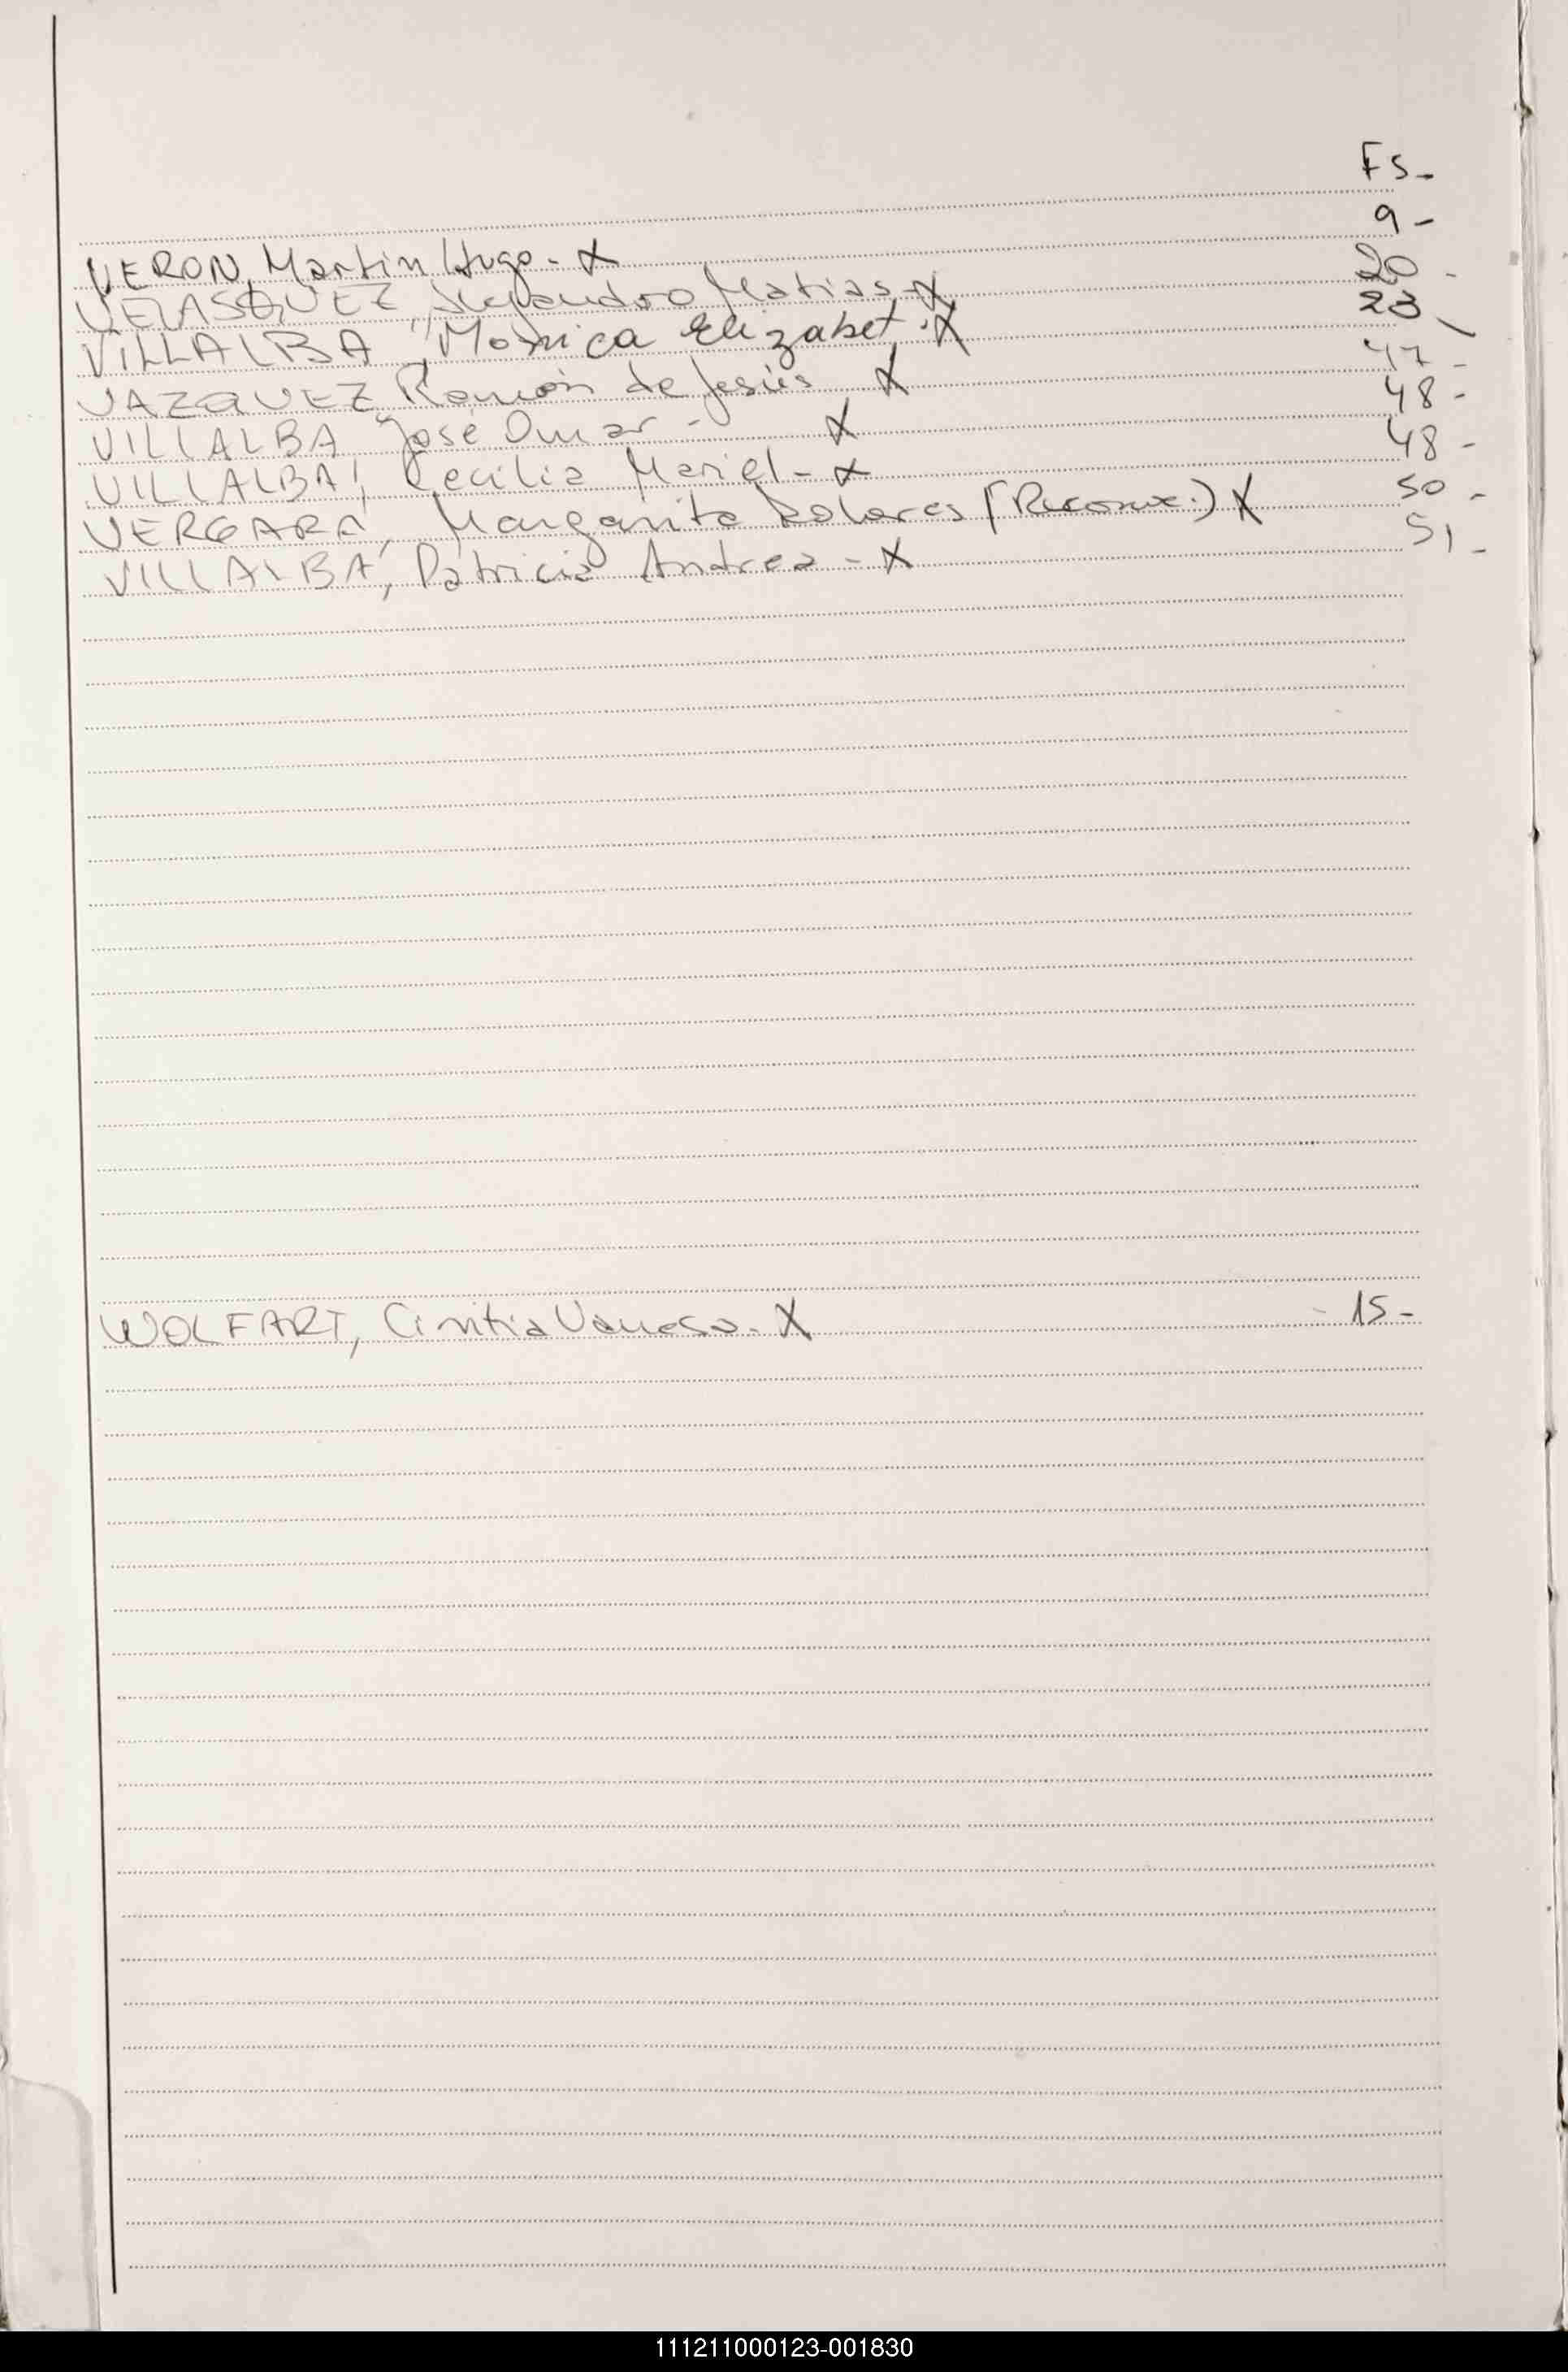 Fs-
VERON, Martin Hugo. - X 9 -
VELASQUEZ, Alejandro Matias - X 20 -
VILLALBA, Mónica Elizabet. X 23 -
VAZQUEZ Ramón de Jesús X 47 -
VILLALBA, José Omar - X 48 -
VILLALBA, Cecilia Mariel - X 48 -
VERGARA, Margarita Dolores (Reconoc.) X 50 -
VILLALBA, Patricia Andrea - X 51 -
WOLFART, Cinitia Vanesa. X - 15 -
111211000123-001830